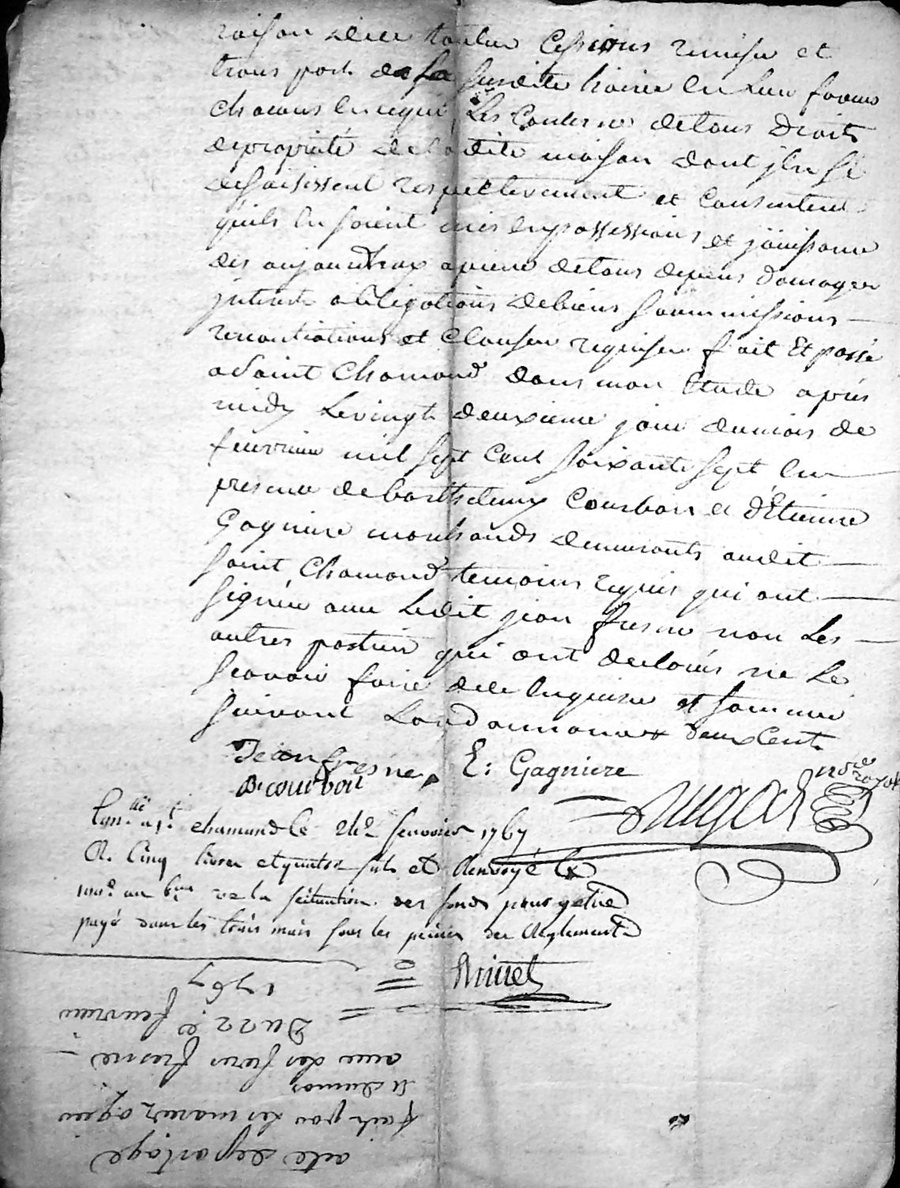 raison dele toutes cessions remise et
trans port de sa susdite hoirie en leur faveur
chacuns en cequi les Conserne detous droits
depropriété deladite maison dont ils se
desaisissent respectivement et Consentent
quils en soient mis enpossessions et joüissance
des aujourdhuy apeine detous depens domages
jnterets obligations debiens soummissions
renontiations et clauses requises fait et passé
a Saint Chamond dans mon Etude aprés
midy Levingt deuxieme jour dumois de
feuvrier mil sept Cent soixante sept en
presence debarthelemy Courbon et d'Etienne
Gagniere marchands demeurants audit
Saint Chamond temoins requis qui ont
signés avec Ledit jean fresne non Les
autres parties qui ont declarés ne Le
scavoir faire dele enquises et sommés
suivant Lordonnance deux Cents
Jean fresne E: Gagniere
B: courbon
nore royal
Con.lé a St. chamond le 24e feuvrier 1767
R. Cinq livres et Renvoyé le
au de la situation des fonds pour y etre
payé dans les trois mois sous les peines des Reglements
acte departage
fait par les mariez
et dumas
avec des freres fresne
Du 22e feuvrier
1767